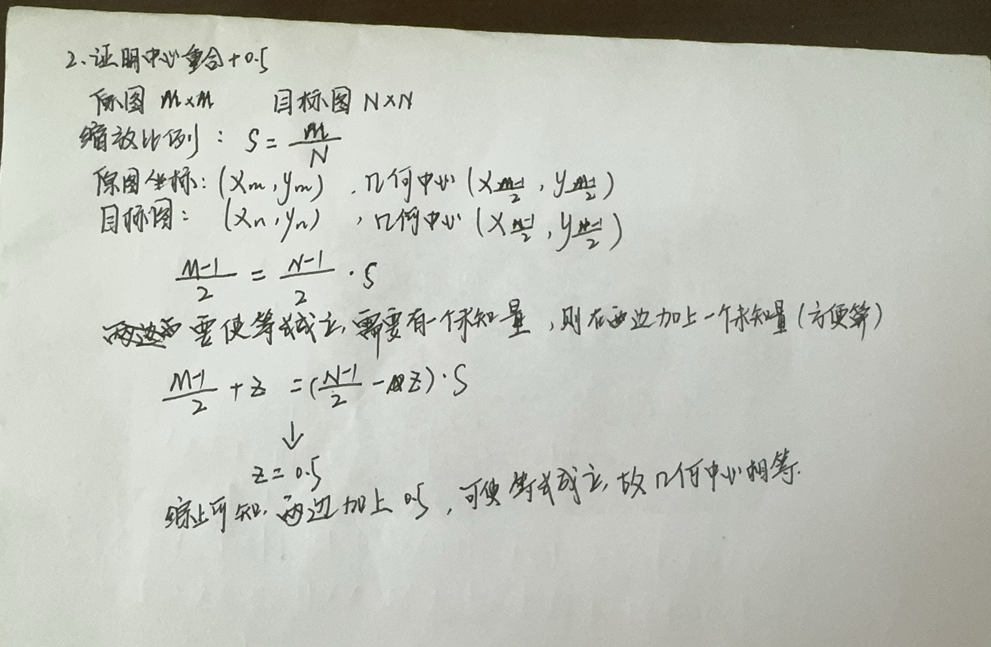 2、证明中心重合+0.5
原图 M×M 目标图 N×N
缩放比例: S = M/N
原图坐标: (Xm, ym), 几何中心 (X m-1/2, y m-1/2)
目标图: (Xn, yn), 几何中心 (X n-1/2, y n-1/2)
M-1/2 = N-1/2 · S
两边 要使等式成立, 需要有一个未知量, 则在两边加上一个未知量 (方便算)
M-1/2 + z = (N-1/2 - z) · S
↓
z = 0.5
综上可知, 两边加上 0.5, 可使等式成立, 故几何中心相等.